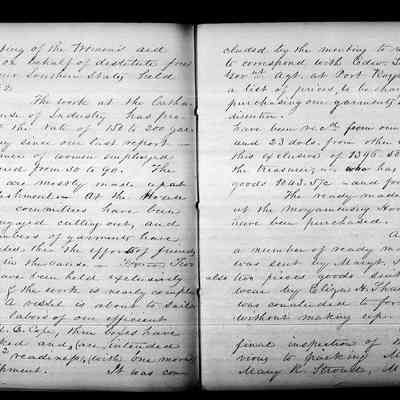 ting of the Women's aid
on behalf of destitute freed
our Southern States, held
2.
The work at the Catha
use of Industry has pro
the rate of 150 to 200 gar
since our last report —
of women employed
from 30 to 90. The
are mostly made up at
ment. At the House
committees have been
engaged cutting out, and
numbers of garments have
the efforts of friends
in this cause —
have been held exclusively
& the work is nearly comple
A vessel is about to sail
labors of our efficient
E. Cope, three boxes have
ked and, (are intended
readiness, (with one more
pment. It was con
cluded by the meeting to
to correspond with Edw.
Agt. at Port Royal
a list of prices, to be cha
purchasing our garments
discretion.
have been recd. from our
und 23 dols. from other
this exclusive of 1395.
the Treasurer, who has
goods 1043.57c — and
The ready made
at the Moyamensing Hou
have been purchased.
a number of ready ma
was sent by Mary
also two pieces goods sent
wear by Elizath H.
was concluded to for
without making up.
final inspection of
vious to packing
Mary R.